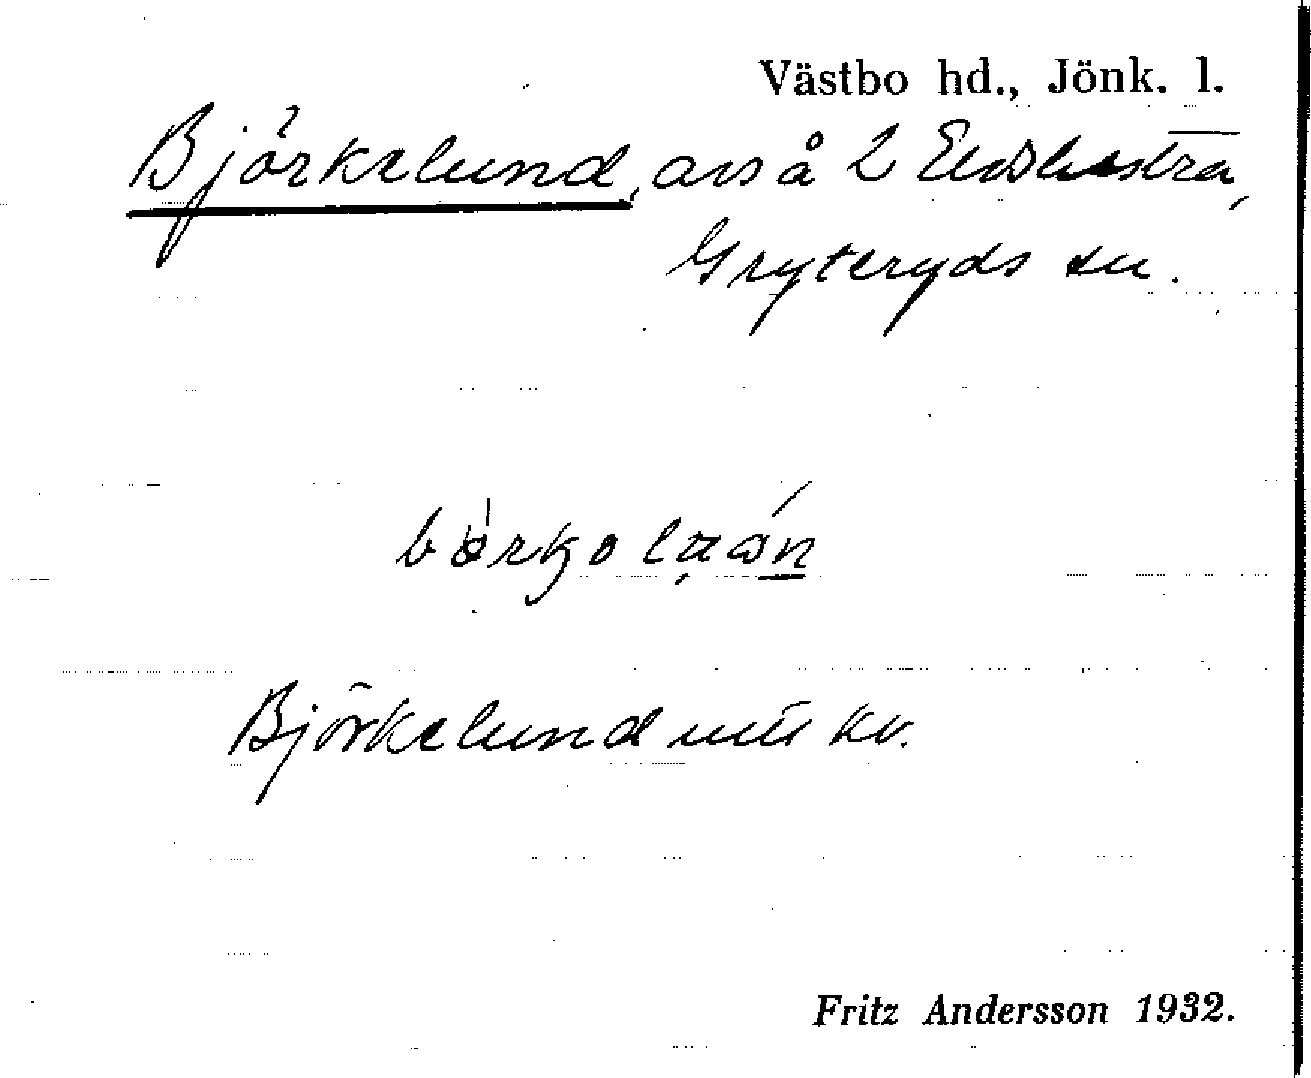 Västbo hd., Jönk. l.
Björkelund, avs å 2 Ekhestra,
Gryteryds sn.
Björkelund utt kv.
Fritz Andersson 1932.